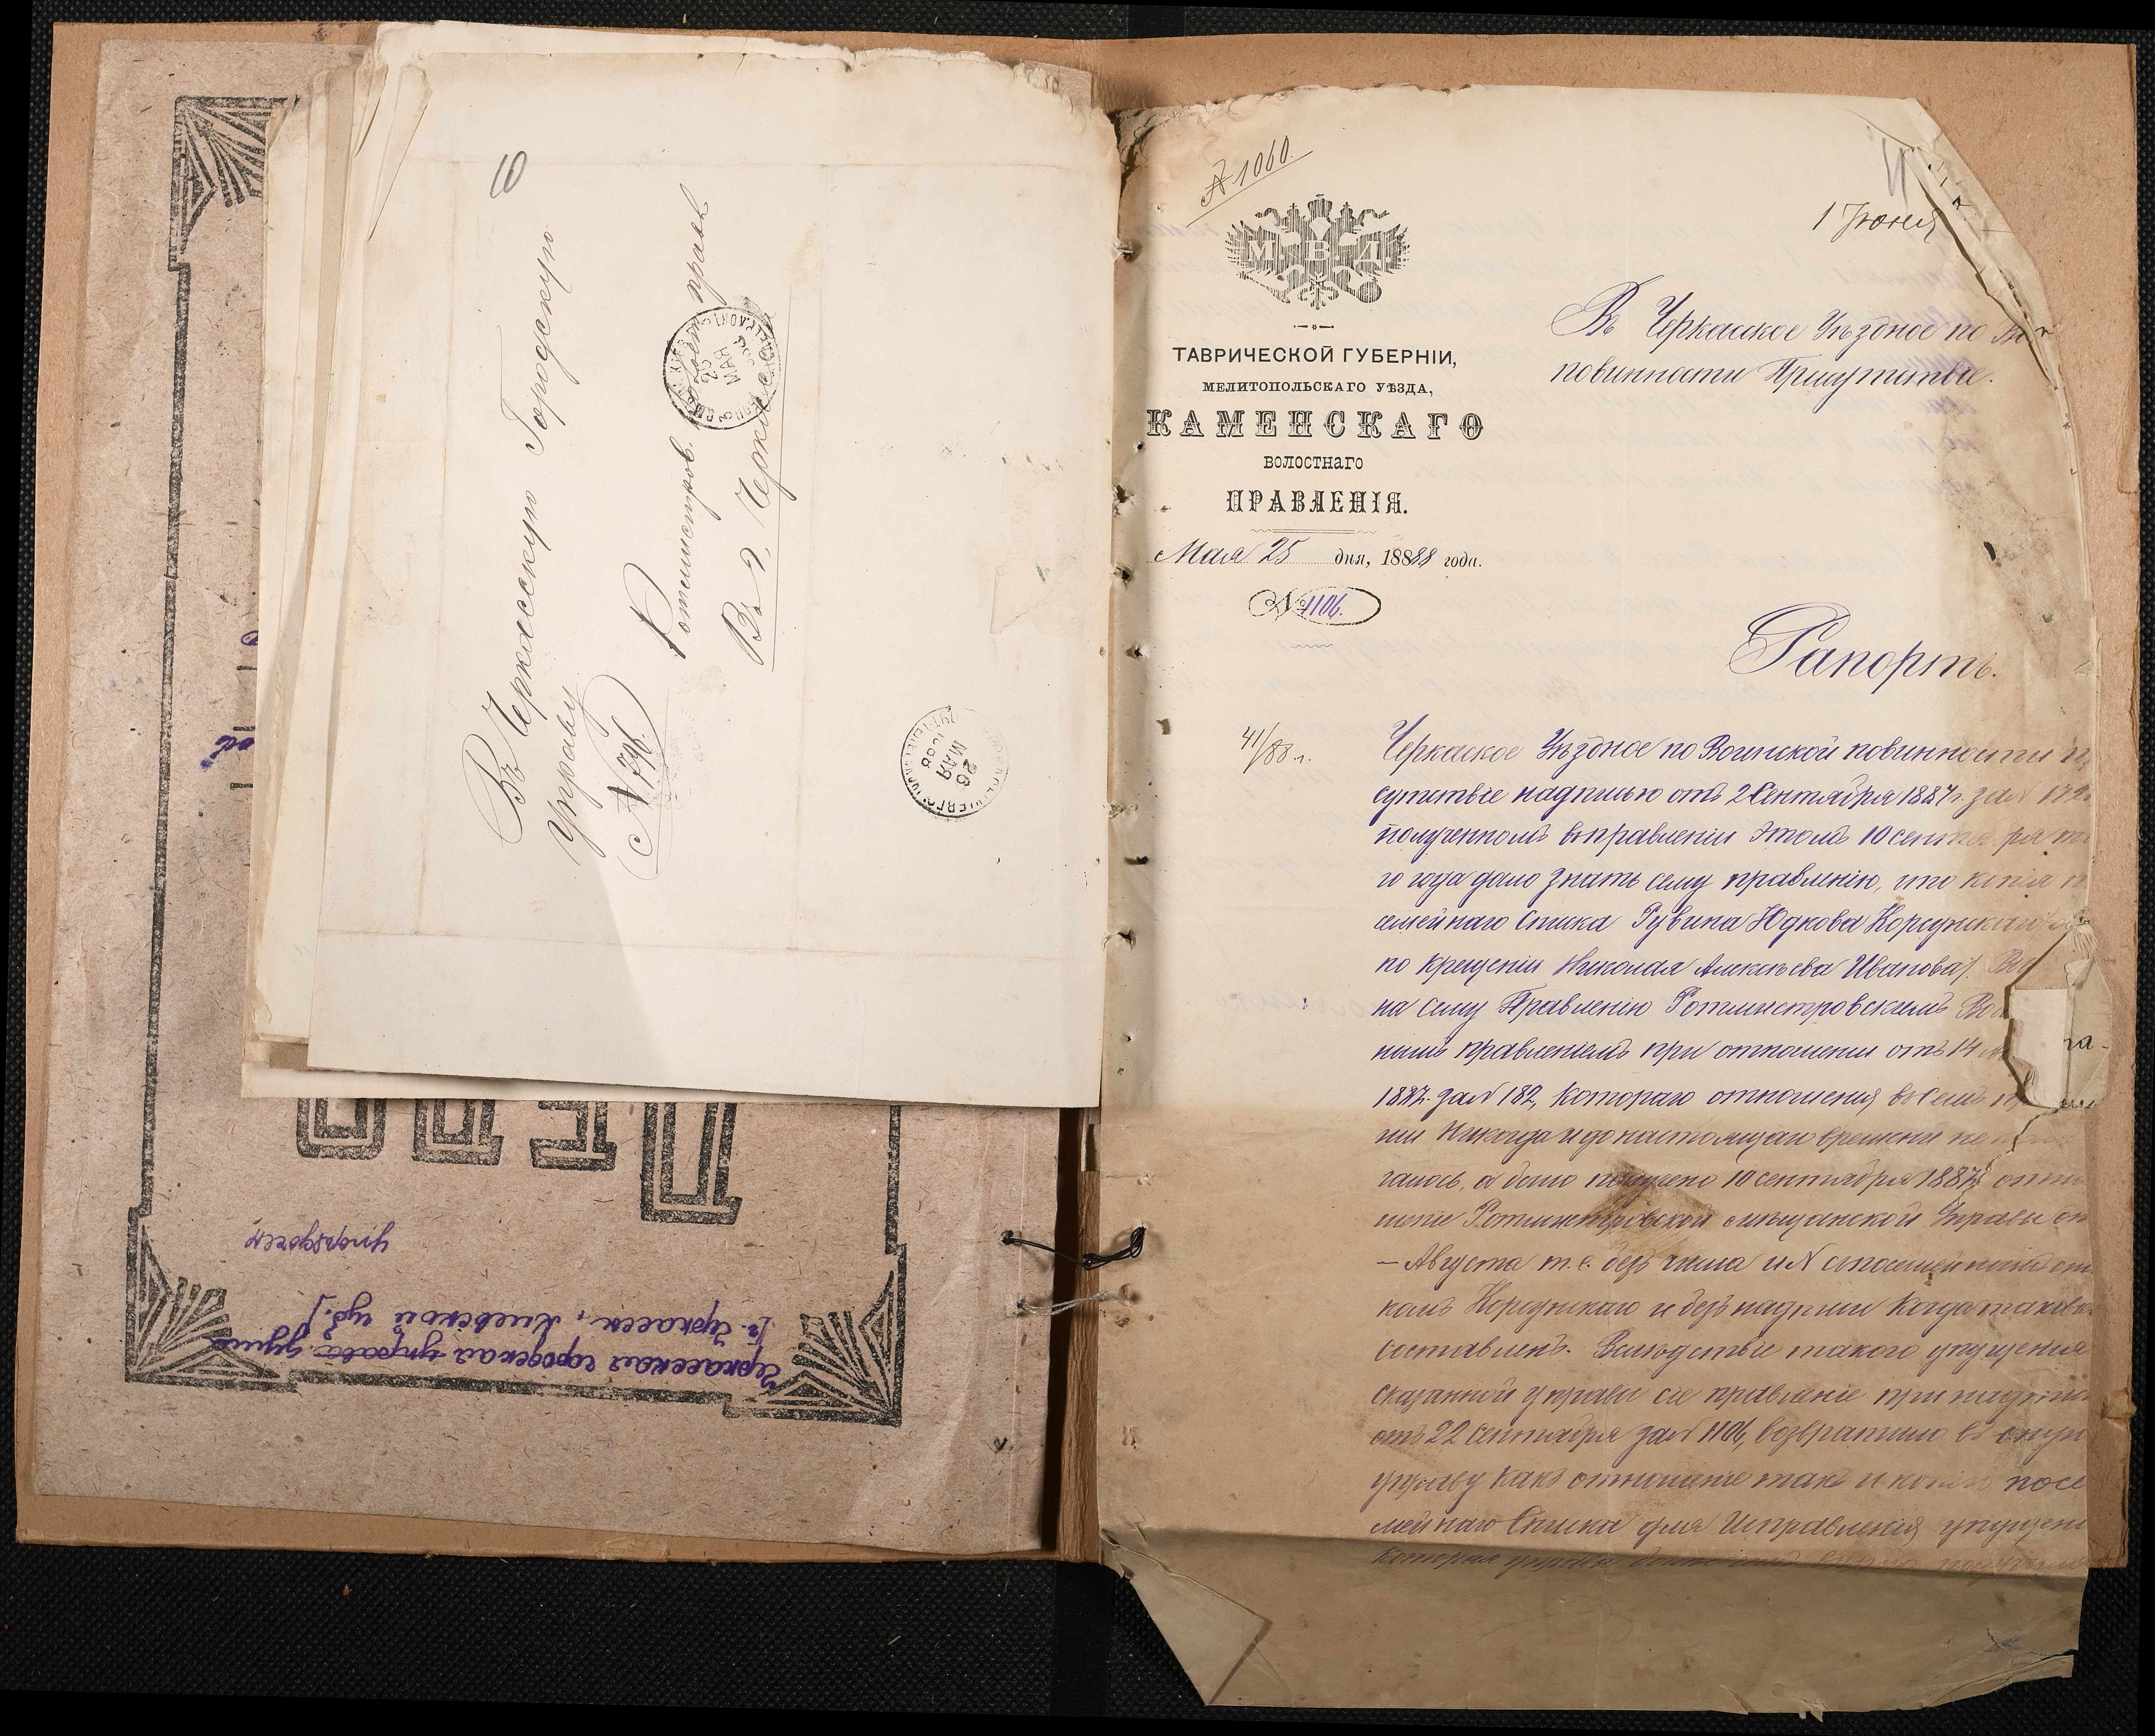 6
Въ Черкасскую Городскую
Управу
№ 796.
Ротмистров.
Въ г. Черкассы
26
МАЯ
1888
ДѢЛО
Черкасская городская управа дума
[г. Черкассы, Киевской губ.]
№ 1060.
11
1 Іюня
М В Д
ТАВРИЧЕСКОЙ ГУБЕРНІИ,
МЕЛИТОПОЛЬСКАГО УѢЗДА,
КАМЕНСКАГО
ВОЛОСТНАГО
ПРАВЛЕНІЯ.
Мая 25 дня, 1888 года.
№ 1106.
Въ Черкаское Уѣздное по
повинности Присутствіе.
Рапортъ.
41/88 г.
Черкаское Уѣздное по Воинской повинности
сутствіе надписью отъ 2 Сентября 1887 г за №
полученномъ въ правленіи этомъ 10 сентября
го года дало знать сему правленію, что копія
семейнаго списка Рувина Юдкова Корсунскаго
по крещеніи Николая Алексѣева Иванова).
на сему Правленію Ротмистровскимъ
нымъ правленіемъ при отношеніи отъ 14
1887 г. за № 182, котораго отношенія въ семъ
ніи никогда и до настоящаго времени не
чалось, а было получено 10 сентября 1887
шеніе Ротмистровской мѣщанской Управы
— Августа т. е. безъ числа и № съ посемейнымъ
комъ Корсунскаго и безъ надписи когда таковой
составленъ. Вслѣдствіе такого упущенія
сказанной управы сіе правленіе при надписи
отъ 22 Сентября за № 1106, возвратило въ
управу какъ отношеніе такъ и копію посе
мейнаго Списка для Исправленія
которая управа